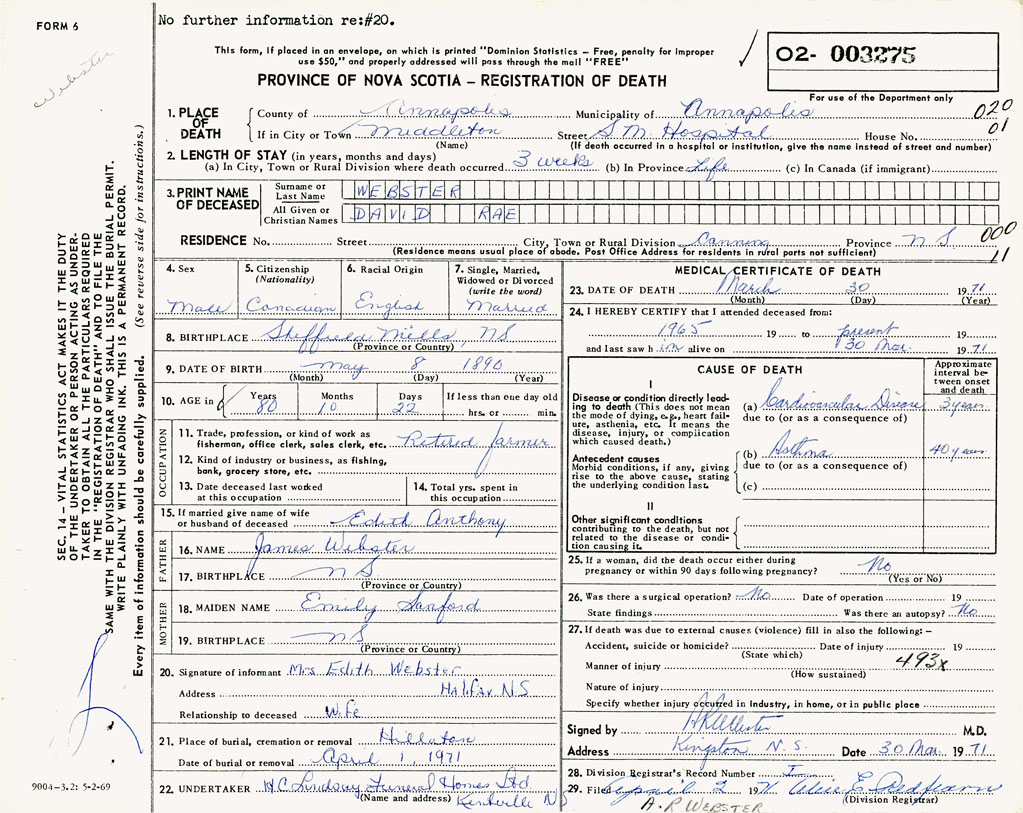 FORM 6
No further information re:#20.
Webster
This form, if placed in an envelope, on which is printed "Dominion Statistics – Free, penalty for improper
use $50," and properly addressed will pass through the mail "FREE"
PROVINCE OF NOVA SCOTIA – REGISTRATION OF DEATH
02- 003275
For use of the Department only
1. PLACE OF DEATH
County of Annapolis Municipality of Annapolis 020
If in City or Town Middleton Street S M. Hospital House No. 01
(Name) (If death occurred in a hospital or institution, give the name instead of street and number)
2. LENGTH OF STAY (in years, months and days)
(a) In City, Town or Rural Division where death occurred 3 weeks (b) In Province Life (c) In Canada (if immigrant)
3. PRINT NAME OF DECEASED
Surname or Last Name WEBSTER
All Given or Christian Names DAVID RAE
RESIDENCE No. Street City, Town or Rural Division Canning Province N S 000
(Residence means usual place of abode. Post Office Address for residents in rural parts not sufficient) 11
4. Sex Male
5. Citizenship (Nationality) Canadian
6. Racial Origin English
7. Single, Married, Widowed or Divorced (write the word) Married
8. BIRTHPLACE Sheffield Mills, NS
(Province or Country)
9. DATE OF BIRTH May 8 1890
(Month) (Day) (Year)
10. AGE in Years 80 Months 10 Days 22 If less than one day old hrs. or min.
OCCUPATION
11. Trade, profession, or kind of work as fisherman, office clerk, sales clerk, etc. Retired farmer
12. Kind of industry or business, as fishing, bank, grocery store, etc.
13. Date deceased last worked at this occupation
14. Total yrs. spent in this occupation
15. If married give name of wife or husband of deceased Edith Anthony
FATHER
16. NAME James Webster
17. BIRTHPLACE NS
(Province or Country)
MOTHER
18. MAIDEN NAME Emily Sanford
19. BIRTHPLACE NS
(Province or Country)
20. Signature of informant Mrs Edith Webster
Address Halifax N.S
Relationship to deceased Wife
21. Place of burial, cremation or removal Hillaton
Date of burial or removal April 1, 1971
22. UNDERTAKER H C Lindsay Funeral Homes Ltd
(Name and address) Kentville NS
MEDICAL CERTIFICATE OF DEATH
23. DATE OF DEATH March 30 1971
(Month) (Day) (Year)
24. I HEREBY CERTIFY that I attended deceased from:
1965 19 to present 19
and last saw him alive on 30 Mar. 1971
CAUSE OF DEATH
Approximate interval between onset and death
I
Disease or condition directly leading to death (This does not mean the mode of dying, e.g., heart failure, asthenia, etc. It means the disease, injury, or complication which caused death.)
(a) Cardiovascular Disease 3 years
due to (or as a consequence of)
Antecedent causes
Morbid conditions, if any, giving rise to the above cause, stating the underlying condition last.
(b) Asthma 40 years
due to (or as a consequence of)
(c)
II
Other significant conditions contributing to the death, but not related to the disease or condition causing it.
25. If a woman, did the death occur either during pregnancy or within 90 days following pregnancy? No
(Yes or No)
26. Was there a surgical operation? No Date of operation 19
State findings Was there an autopsy? No
27. If death was due to external causes (violence) fill in also the following: –
Accident, suicide or homicide? Date of injury 19
(State which)
Manner of injury 493x
(How sustained)
Nature of injury
Specify whether injury occurred in industry, in home, or in public place
Signed by M.D.
Address Kingston N.S. Date 30 Mar. 1971
28. Division Registrar's Record Number
29. Filed April 2 1971 E Redfearn
(Division Registrar)
A. R WEBSTER
SEC. 14 – VITAL STATISTICS ACT MAKES IT THE DUTY
OF THE UNDERTAKER OR PERSON ACTING AS UNDER-
TAKER TO OBTAIN ALL THE PARTICULARS REQUIRED
IN THE "REGISTRATION OF DEATH" AND TO FILE THE
SAME WITH THE DIVISION REGISTRAR WHO SHALL ISSUE THE BURIAL PERMIT.
WRITE PLAINLY WITH UNFADING INK. THIS IS A PERMANENT RECORD.
Every item of information should be carefully supplied. (See reverse side for instructions.)
9004-3.2: 5-2-69